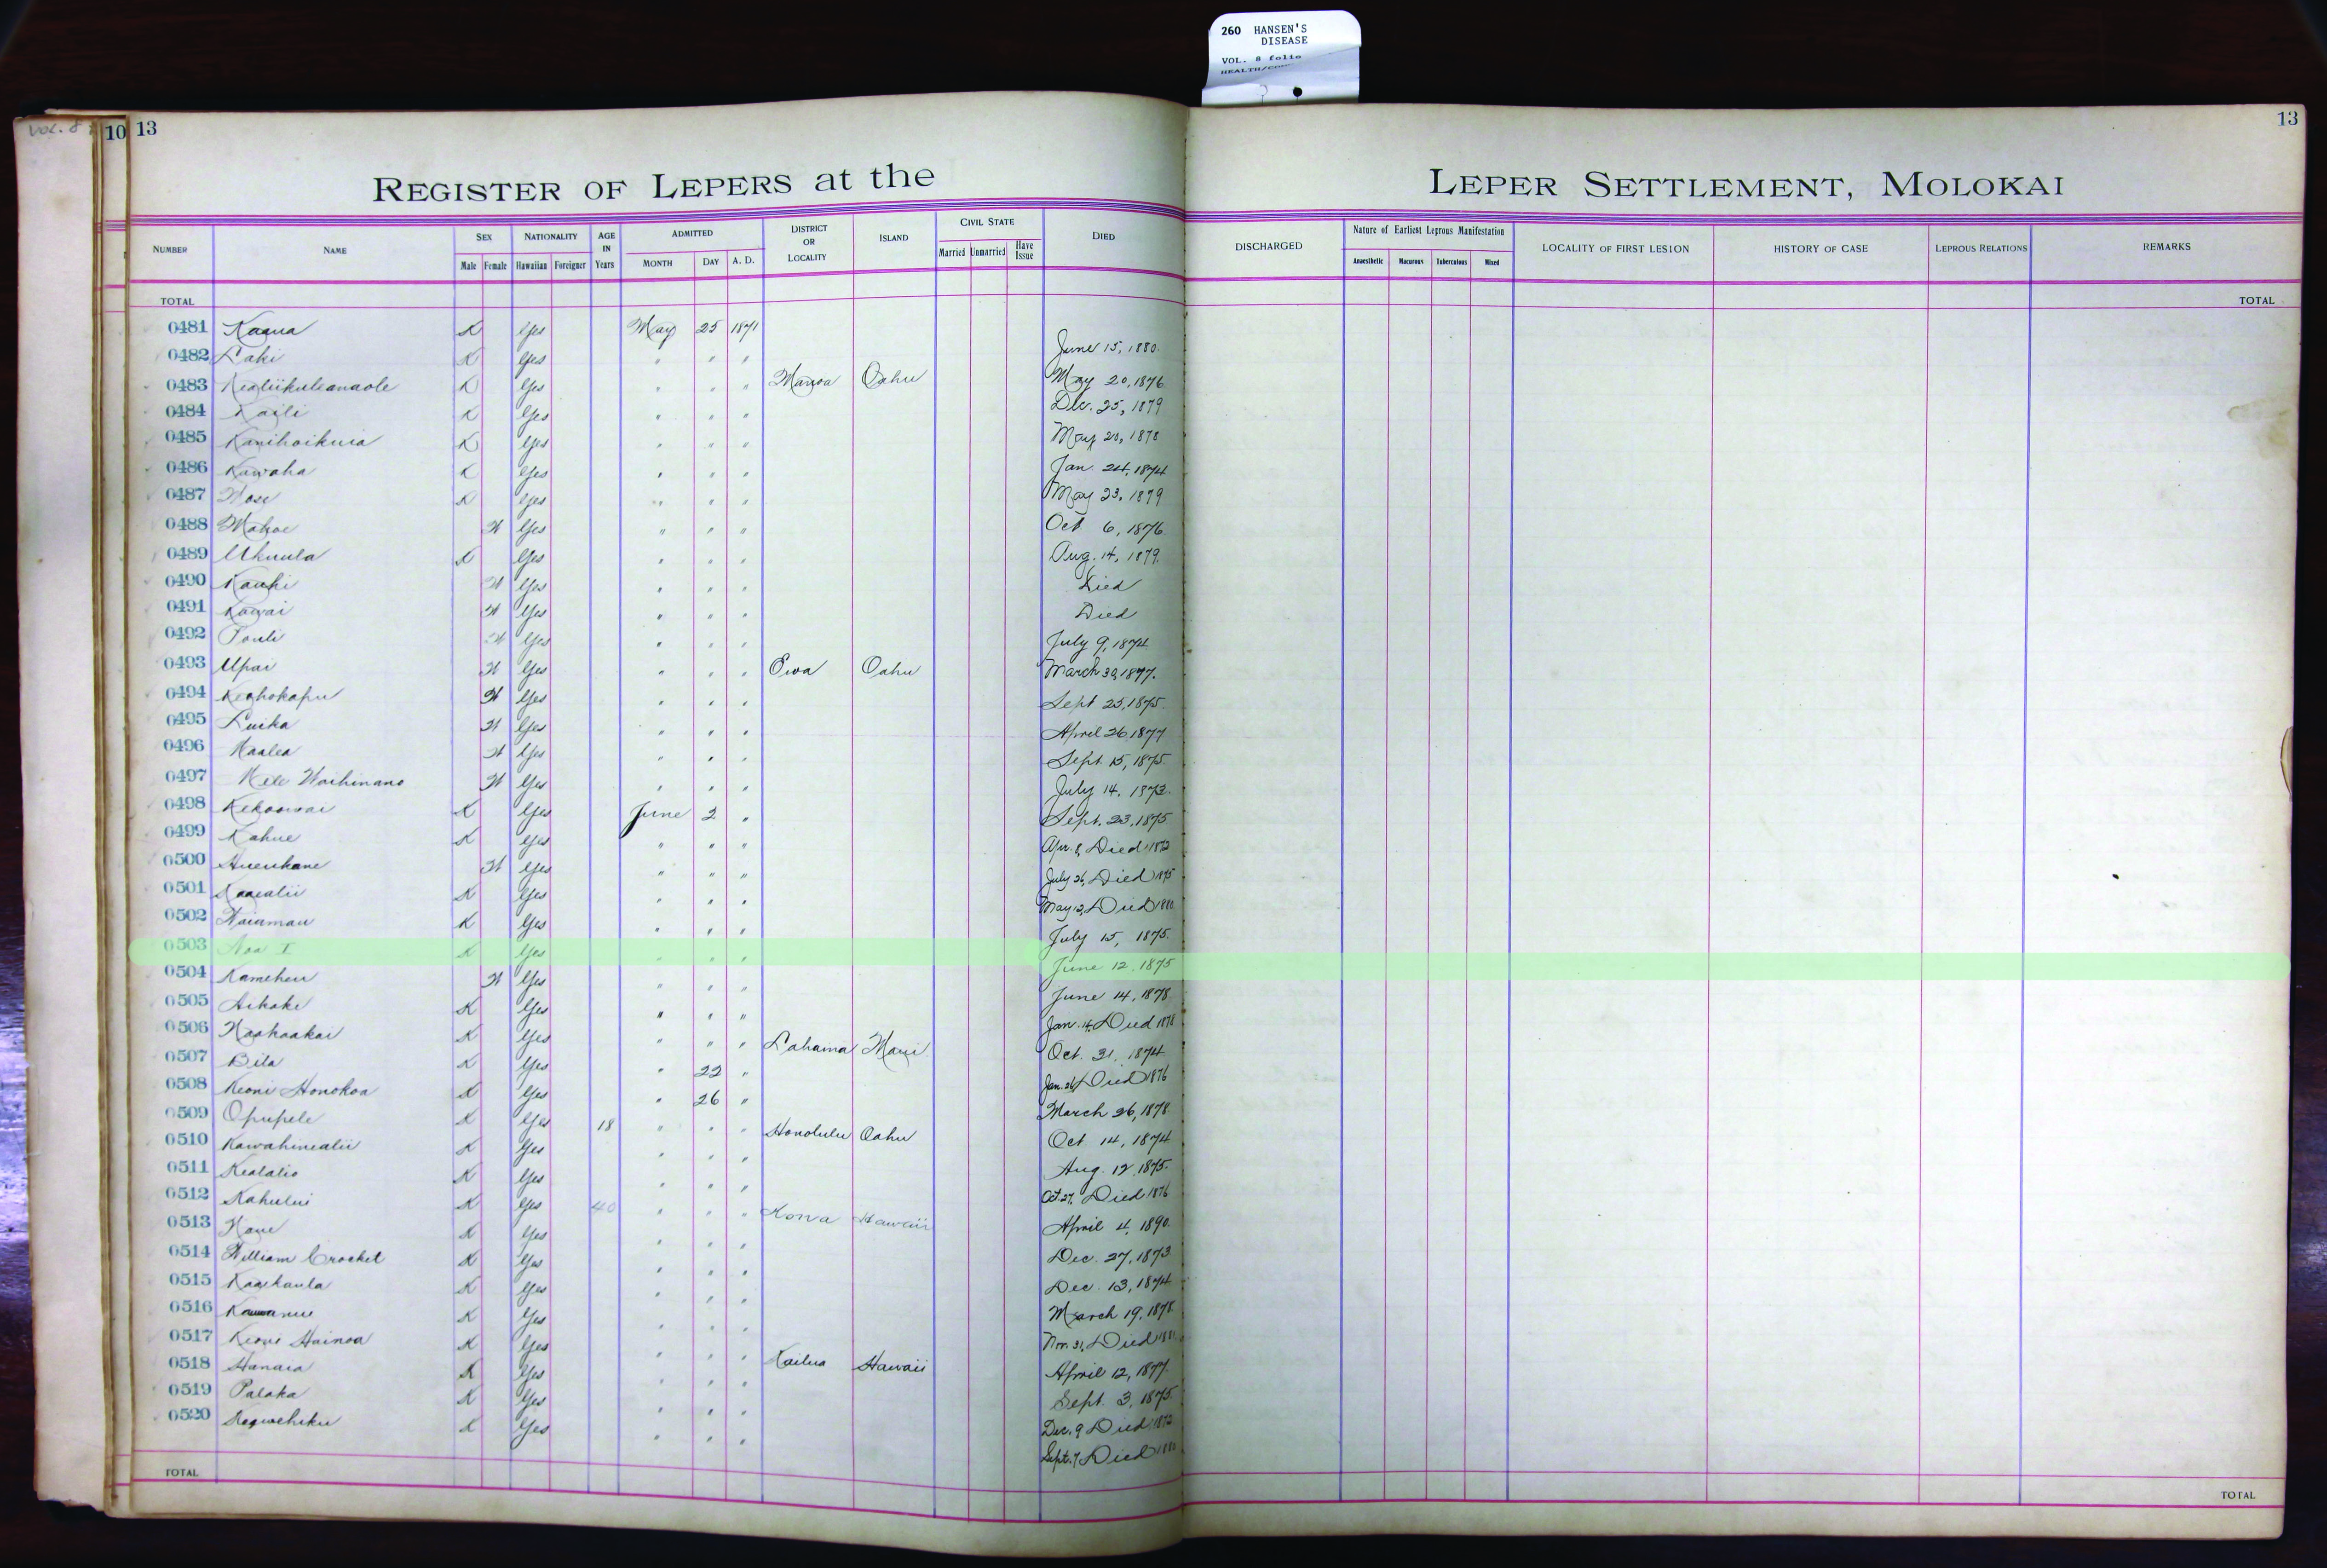 260 HANSEN'S
DISEASE
VOL. 8 folio
VOL. 8
10 13
13
REGISTER OF LEPERS at the
LEPER SETTLEMENT, MOLOKAI
NUMBER NAME SEX Male Female NATIONALITY Hawaiian Foreigner AGE IN Years ADMITTED MONTH DAY A. D. DISTRICT OR LOCALITY ISLAND CIVIL STATE Married Unmarried Have Issue DIED
DISCHARGED Nature of Earliest Leprous Manifestation Anaesthetic Macurous Tuberculous Mixed LOCALITY OF FIRST LESION HISTORY OF CASE LEPROUS RELATIONS REMARKS
TOTAL TOTAL
0481 Kaaua K Yes May 25 1871 June 15, 1880.
0482 Laki K Yes " " " May 20, 1876
0483 Kealiikuleanaole K Yes " " " Manoa Oahu Dec. 25, 1879
0484 Kaili K Yes " " " May 20, 1878
0485 Kanihoikuia K Yes " " " Jan. 24, 1874
0486 Kawaha K Yes " " " May 23, 1879
0487 K Yes " " " Oct 6, 1876.
0488 Mahoe W Yes " " " Aug. 14, 1879.
0489 Ukuula K Yes " " " Died
0490 Kauhi W Yes " " " Died
0491 Kawai W Yes " " " July 9, 1874
0492 Pouli W Yes " " " March 30, 1877.
0493 Upai W Yes " " " Ewa Oahu Sept 25, 1875.
0494 Keohokapu W Yes " " " April 26 1877
0495 Luika W Yes " " " Sept. 15, 1875.
0496 Maalea W Yes " " " July 14, 1873.
0497 Mele Waihinano W Yes " " " Sept. 23, 1875
0498 Kekoowai K Yes June 2 " Apr. 8, Died 1872
0499 Kahue K Yes " " " July 26, Died 1875
0500 Hueukane W Yes " " " May 12, Died 1880
0501 Kaaealii K Yes " " " July 15, 1875.
0502 Waiamau K Yes " " " June 12, 1875
0503 Noa I K Yes " " " June 14, 1878
0504 Kameheu W Yes " " " Jan. 14, Died 1878
0505 Aikake K Yes " " " Oct. 31, 1874
0506 Naohaakai K Yes " " " Lahaina Maui Jan. 26, Died 1876
0507 Bila K Yes " 22 " March 26, 1878
0508 Keoni Honokoa K Yes " 26 " Oct 14, 1874
0509 Opupele K Yes 18 " " " Honolulu Oahu Aug. 12, 1875.
0510 Kawahinealii K Yes " " " Oct. 27, Died 1876
0511 Kealalio K Yes " " " April 4, 1890.
0512 Kahului K Yes 40 " " " Kona Hawaii Dec. 27, 1873
0513 K Yes " " " Dec. 13, 1874
0514 William Crocket K Yes " " " March 19, 1878
0515 Kaaikaula K Yes " " " Nov. 31, Died
0516 K Yes " " " April 12, 1877.
0517 Keoni Hainoa K Yes " " " Sept. 3, 1875.
0518 Hanaia K Yes " " " Kailua Hawaii Dec. 9 Died 1872
0519 Palaka K Yes " " " Sept. 7, Died
0520 K Yes " " "
TOTAL TOTAL